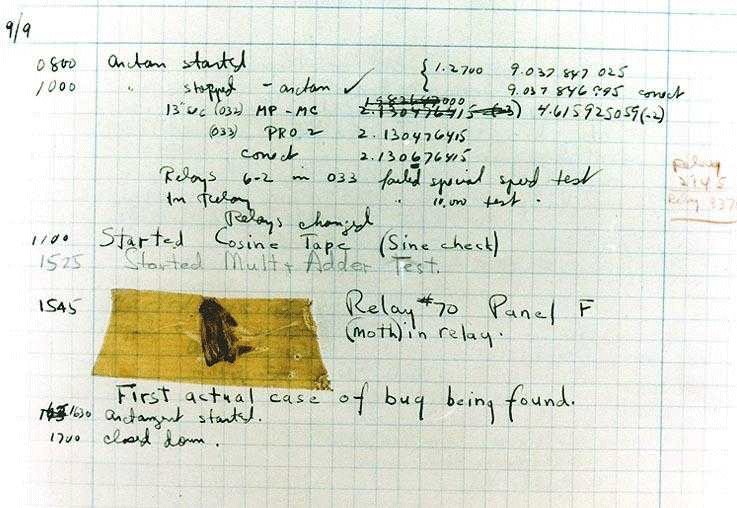 9/9
0800 arctan started { 1.2700 9.037 847 025
1000 " stopped - arctan ✓ 9.037 846 995 correct
13" sec (032) MP - MC 2.130476415 (-3) 4.615925059(-2)
(033) PRO 2 2.130476415
correct 2.130676415
Relays 6-2 in 033 failed special speed test
In Relay " 10.000 test .
Relays changed
1100 Started Cosine Tape (Sine check)
1525 Started Mult + Adder Test.
1545 Relay #70 Panel F
(moth) in relay.
First actual case of bug being found.
1630 arctangent started.
1700 closed down.
Relay
Relay 337